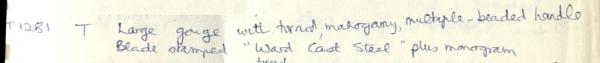 T1281 T Large gouge with turned, mahogany, multiple-beaded handle
Blade stamped "Ward Cast Steel" plus monogram
turned